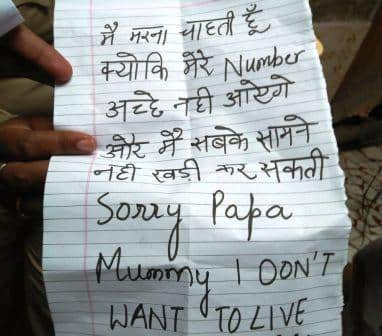 मै मरना चाहती हूँ
क्योकि मेरे Number
अच्छे नही आऐगे
और मै सबके सामने
नही खडी कर सकती
Sorry Papa
Mummy I DON'T
WANT TO LIVE